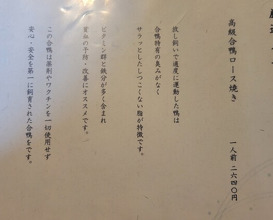 高級合鴨ロース焼き 一人前 二六四〇円
放し飼いで適度に運動した鴨は
合鴨特有の臭みがなく
サラッとしたしつこくない脂が特徴です。
ビタミン群と鉄分が多く含まれ
貧血の予防・改善にオススメです。
この合鴨は薬剤やワクチンを一切使用せず
安心・安全を第一に飼育された合鴨です。